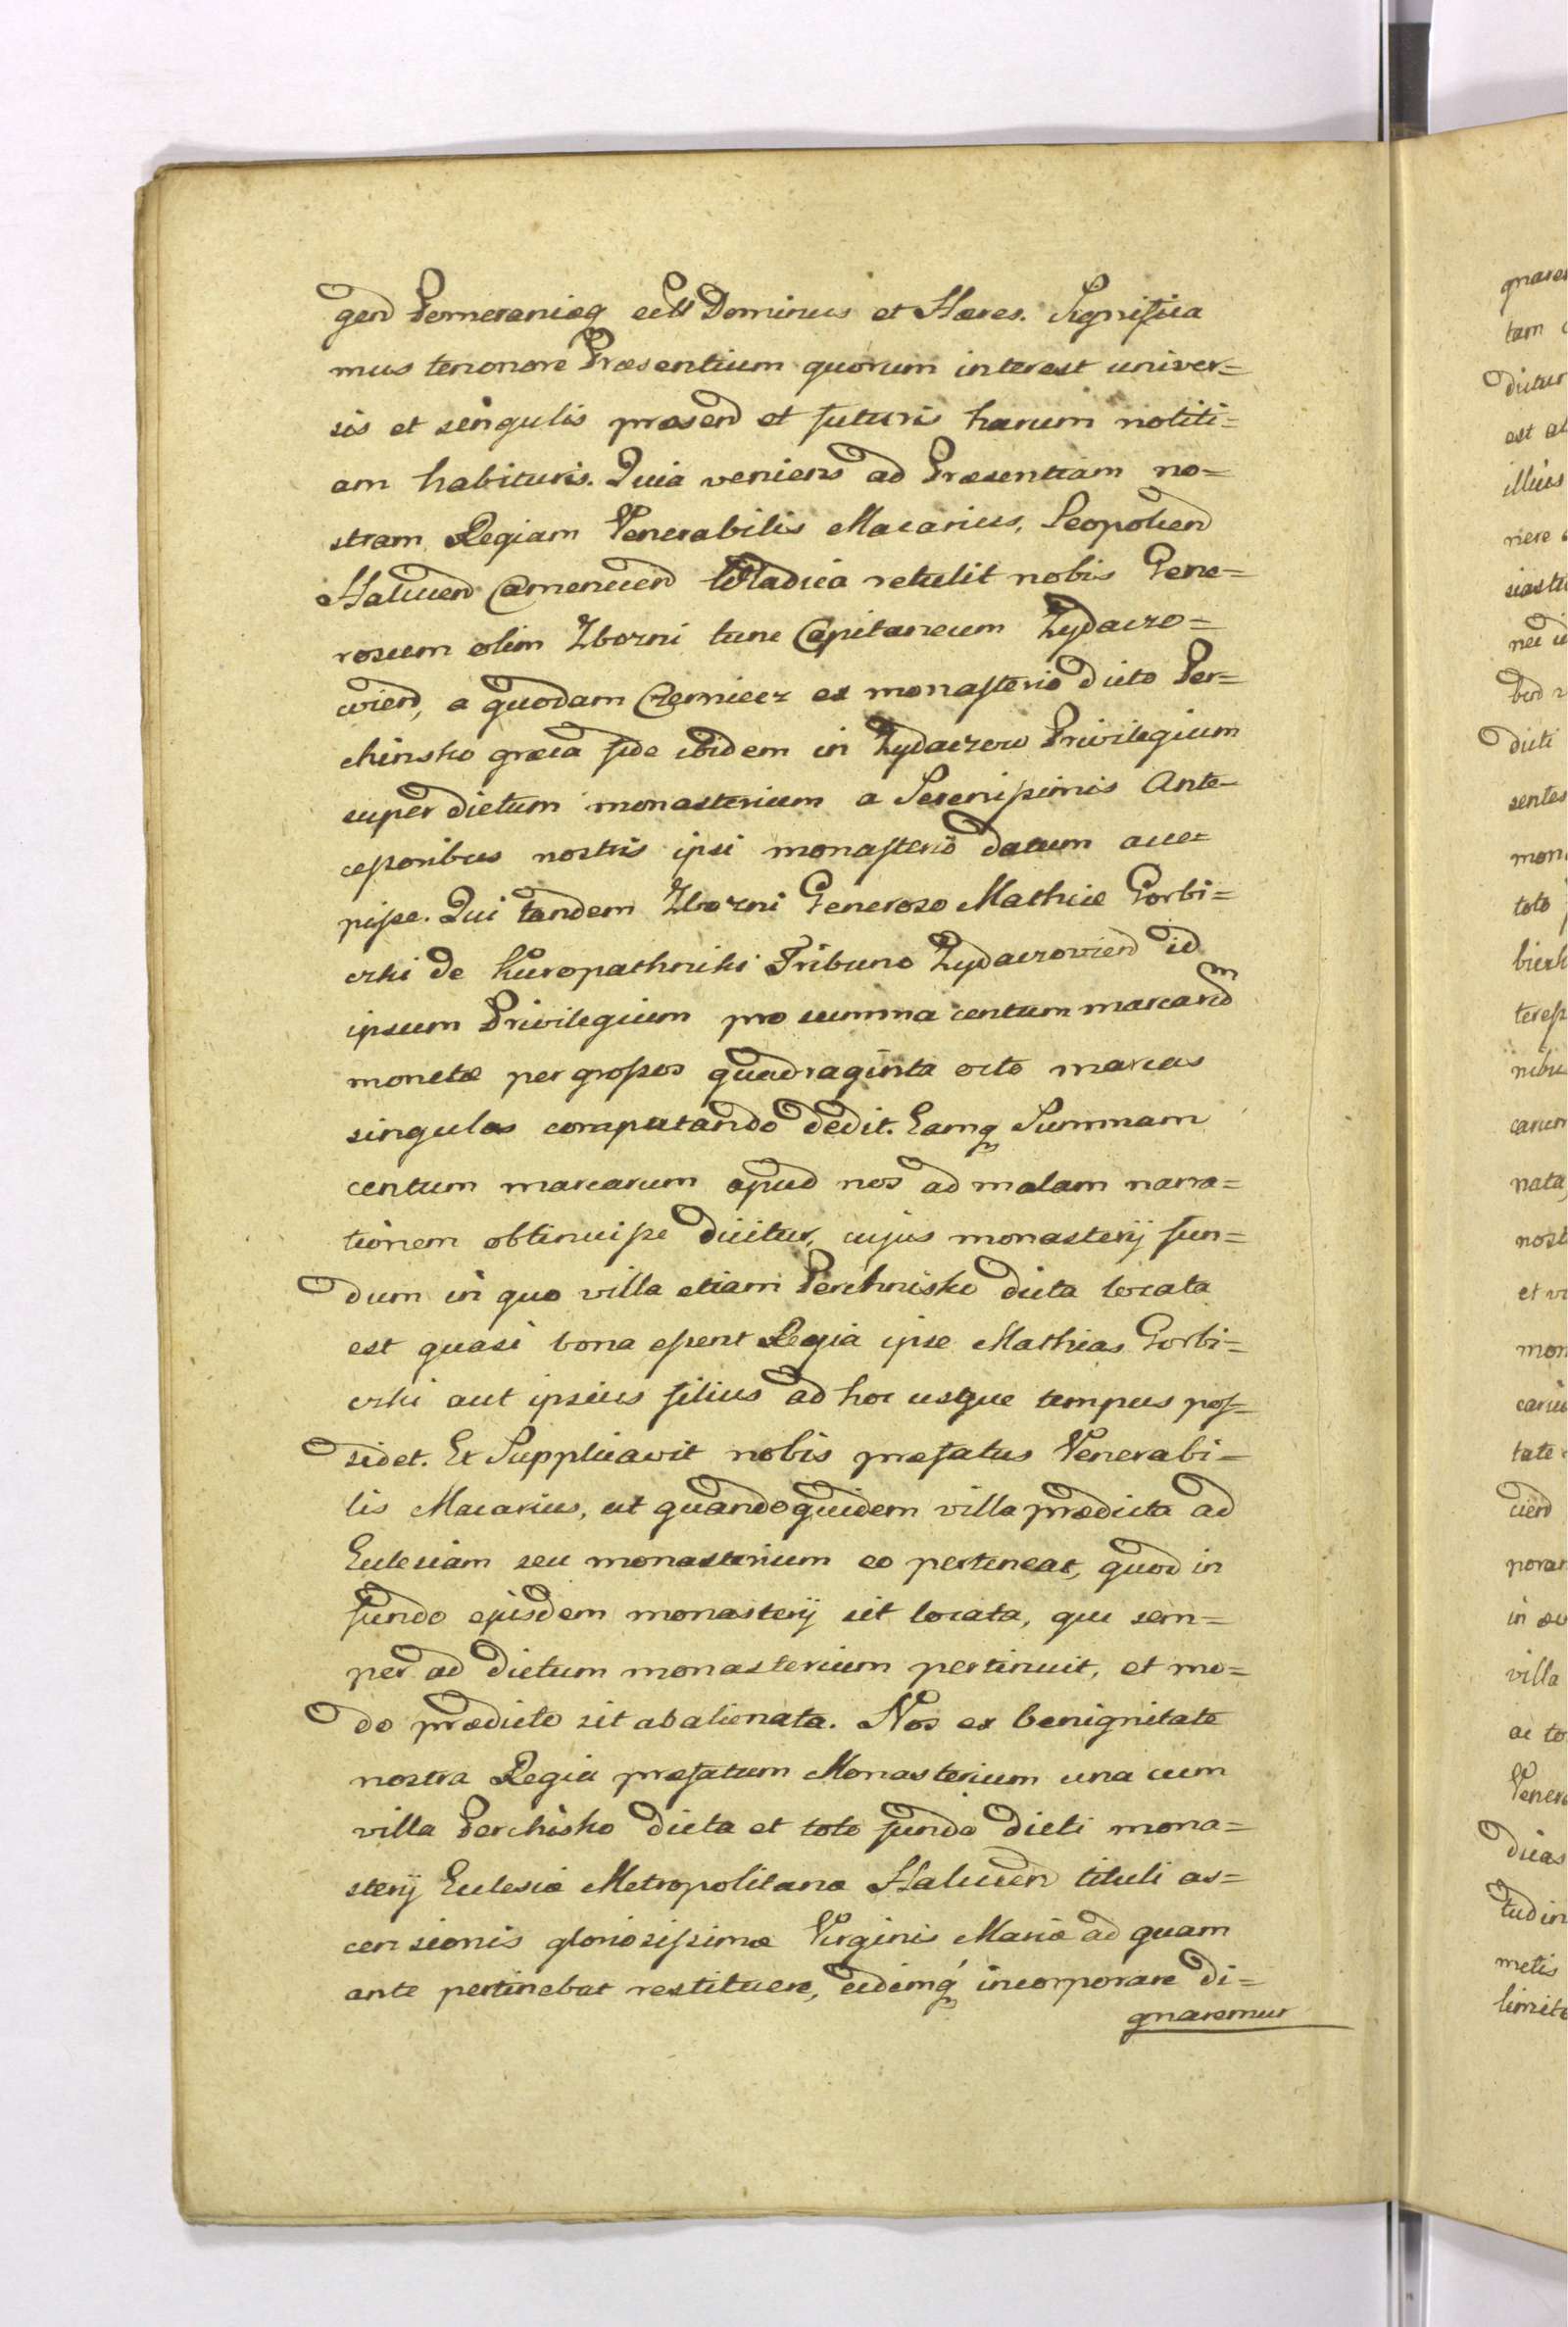 gen Pomeraniæq ectt Dominus et Hæres. Significa
mus tenonore Præsentium quorum interest univer=
sis et singulis præsen et futuris harum notiti=
am habituris. Quia veniens ad Præsentiam no=
stram Regiam Venerabilis Macarius, Leopolien
Halicien Camenecien Wladica retulit nobis Gene=
rosum olim Zborni tunc Capitaneum Zydaczo=
wien, a quodam Czerniecz ex monasterio dicto Per=
chinsko græca fide ibidem in Zydaczow Privilegium
super dictum monasterium a Serenissimis Ante=
cessoribus nostris ipsi monasterio datum acce=
pisse. Qui tandem Zborni Generoso Mathiæ Gorbi=
czki de Kuropathniki Tribuno Zydaczovien id
ipsum Privilegium pro summa centum marcarum
monetæ per grossos quadraginta octo marcas
singulas computando dedit. Eamq Summam
centum marcarum apud nos ad malam narra=
tionem obtinuisse dicitur, cujus monasterij fun=
dum in quo villa etiam Perchnisko dicta locata
est quasi bona essent Regia ipse Mathias Gorbi=
czki aut ipsius filius ad hoc usque tempus pos=
sidet. Et Supplicavit nobis præfatus Venerabi=
lis Macarius, ut quandoquidem villa prædicta ad
Eclesiam seu monasterium eo pertineat, quod in
fundo ejusdem monasterij sit locata, qui sem=
per ad dictum monasterium pertinuit, et mo=
do prædicto sit abalienata. Nos ex benignitate
nostra Regia præfatum Monasterium una cum
villa Perchisko dicta et toto fundo dicti mona=
sterij Eclesiæ Metropolitanæ Halicien tituli as=
censionis gloriosissimæ Virginis Mariæ ad quam
ante pertinebat restituere, eidemq incorporare di=
gnaremur
tam
dictur
est
illius
dicti
sentes
toto
nata
et
tate
in
villa
ac
metis